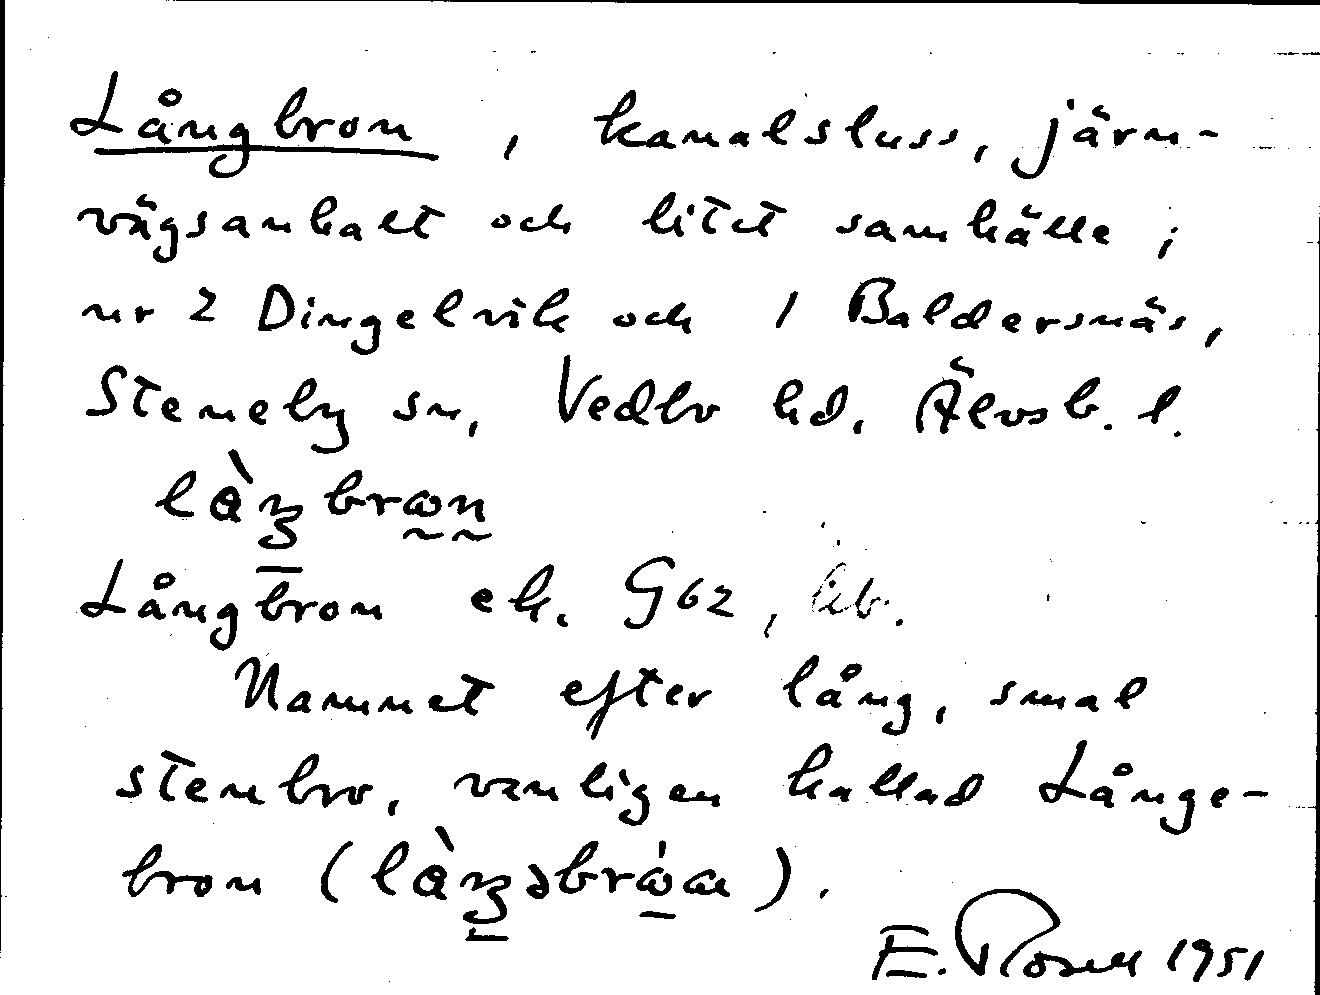 Långbron, kanalsluss, järn-
vägsanhalt och litet samhälle;
nr 2 Dingelvik och 1 Baldersnäs,
Steneby sn, Vedbo hd. Älvsb. l.
Långbron ek. G62,
Namnet efter lång, smal
stenbro, vanligen kallad Långe-
bron
E. Rosell 1951